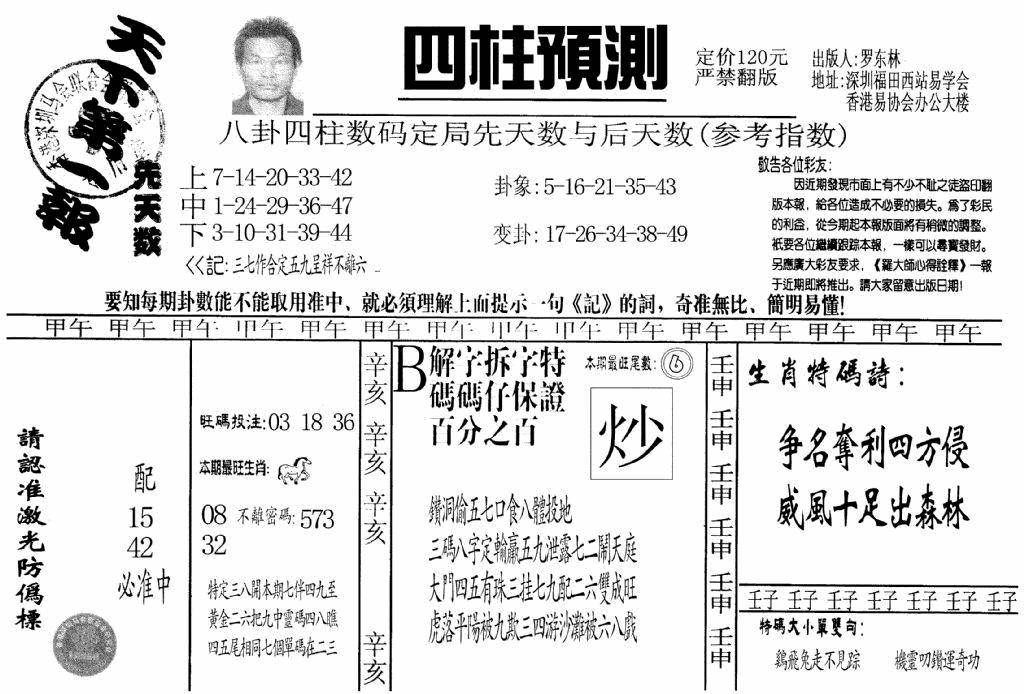 天下第一報
四柱預測
定价120元
严禁翻版
出版人:罗东林
地址:深圳福田西站易学会
香港易协会办公大楼
八卦四柱数码定局先天数与后天数(参考指数)
先天数
上 7-14-20-33-42
中 1-24-29-36-47
下 3-10-31-39-44
<<記:三七作合定五九呈祥不離六
卦象:5-16-21-35-43
变卦:17-26-34-38-49
敬告各位彩友:
因近期發現市面上有不少不耻之徒盜印翻
版本報,給各位造成不必要的損失。爲了彩民
的利益,從今期起本報版面將有稍微的調整。
衹要各位繼續跟踪本報,一樣可以尋寶發財。
另應廣大彩友要求,《羅大師心得詮釋》一報
于近期即將推出。請大家留意出版日期!
要知每期卦數能不能取用准中、就必須理解上面提示一句《記》的詞,奇准無比、簡明易懂!
甲午 甲午 甲午 甲午 甲午 甲午 甲午 甲午 甲午 甲午 甲午 甲午 甲午 甲午 甲午
請認准激光防僞標
配
15
42
必准中
旺碼投注:03 18 36
本期最旺生肖:
08 不離密碼:573
32
特定三八開本期七伴四九至
黄金二六把九中靈碼四八瞧
四五尾相同七個單碼在二三
辛亥 辛亥 辛亥 辛亥
B 解字拆字特
碼碼仔保證
百分之百
本期最旺尾數:6
炒
鑽洞偷五七口食八體投地
三碼八字定輸贏五九泄露七二鬧天庭
大門四五有珠三挂七九配二六雙成旺
虎落平陽被九欺三四游沙灘被六八戲
壬申 壬申 壬申 壬申 壬申 壬申
生肖特碼詩:
争名奪利四方侵
威風十足出森林
壬子 壬子 壬子 壬子 壬子 壬子 壬子
特碼大小單雙句:
鷄飛兔走不見踪 機靈叨鑽運奇功